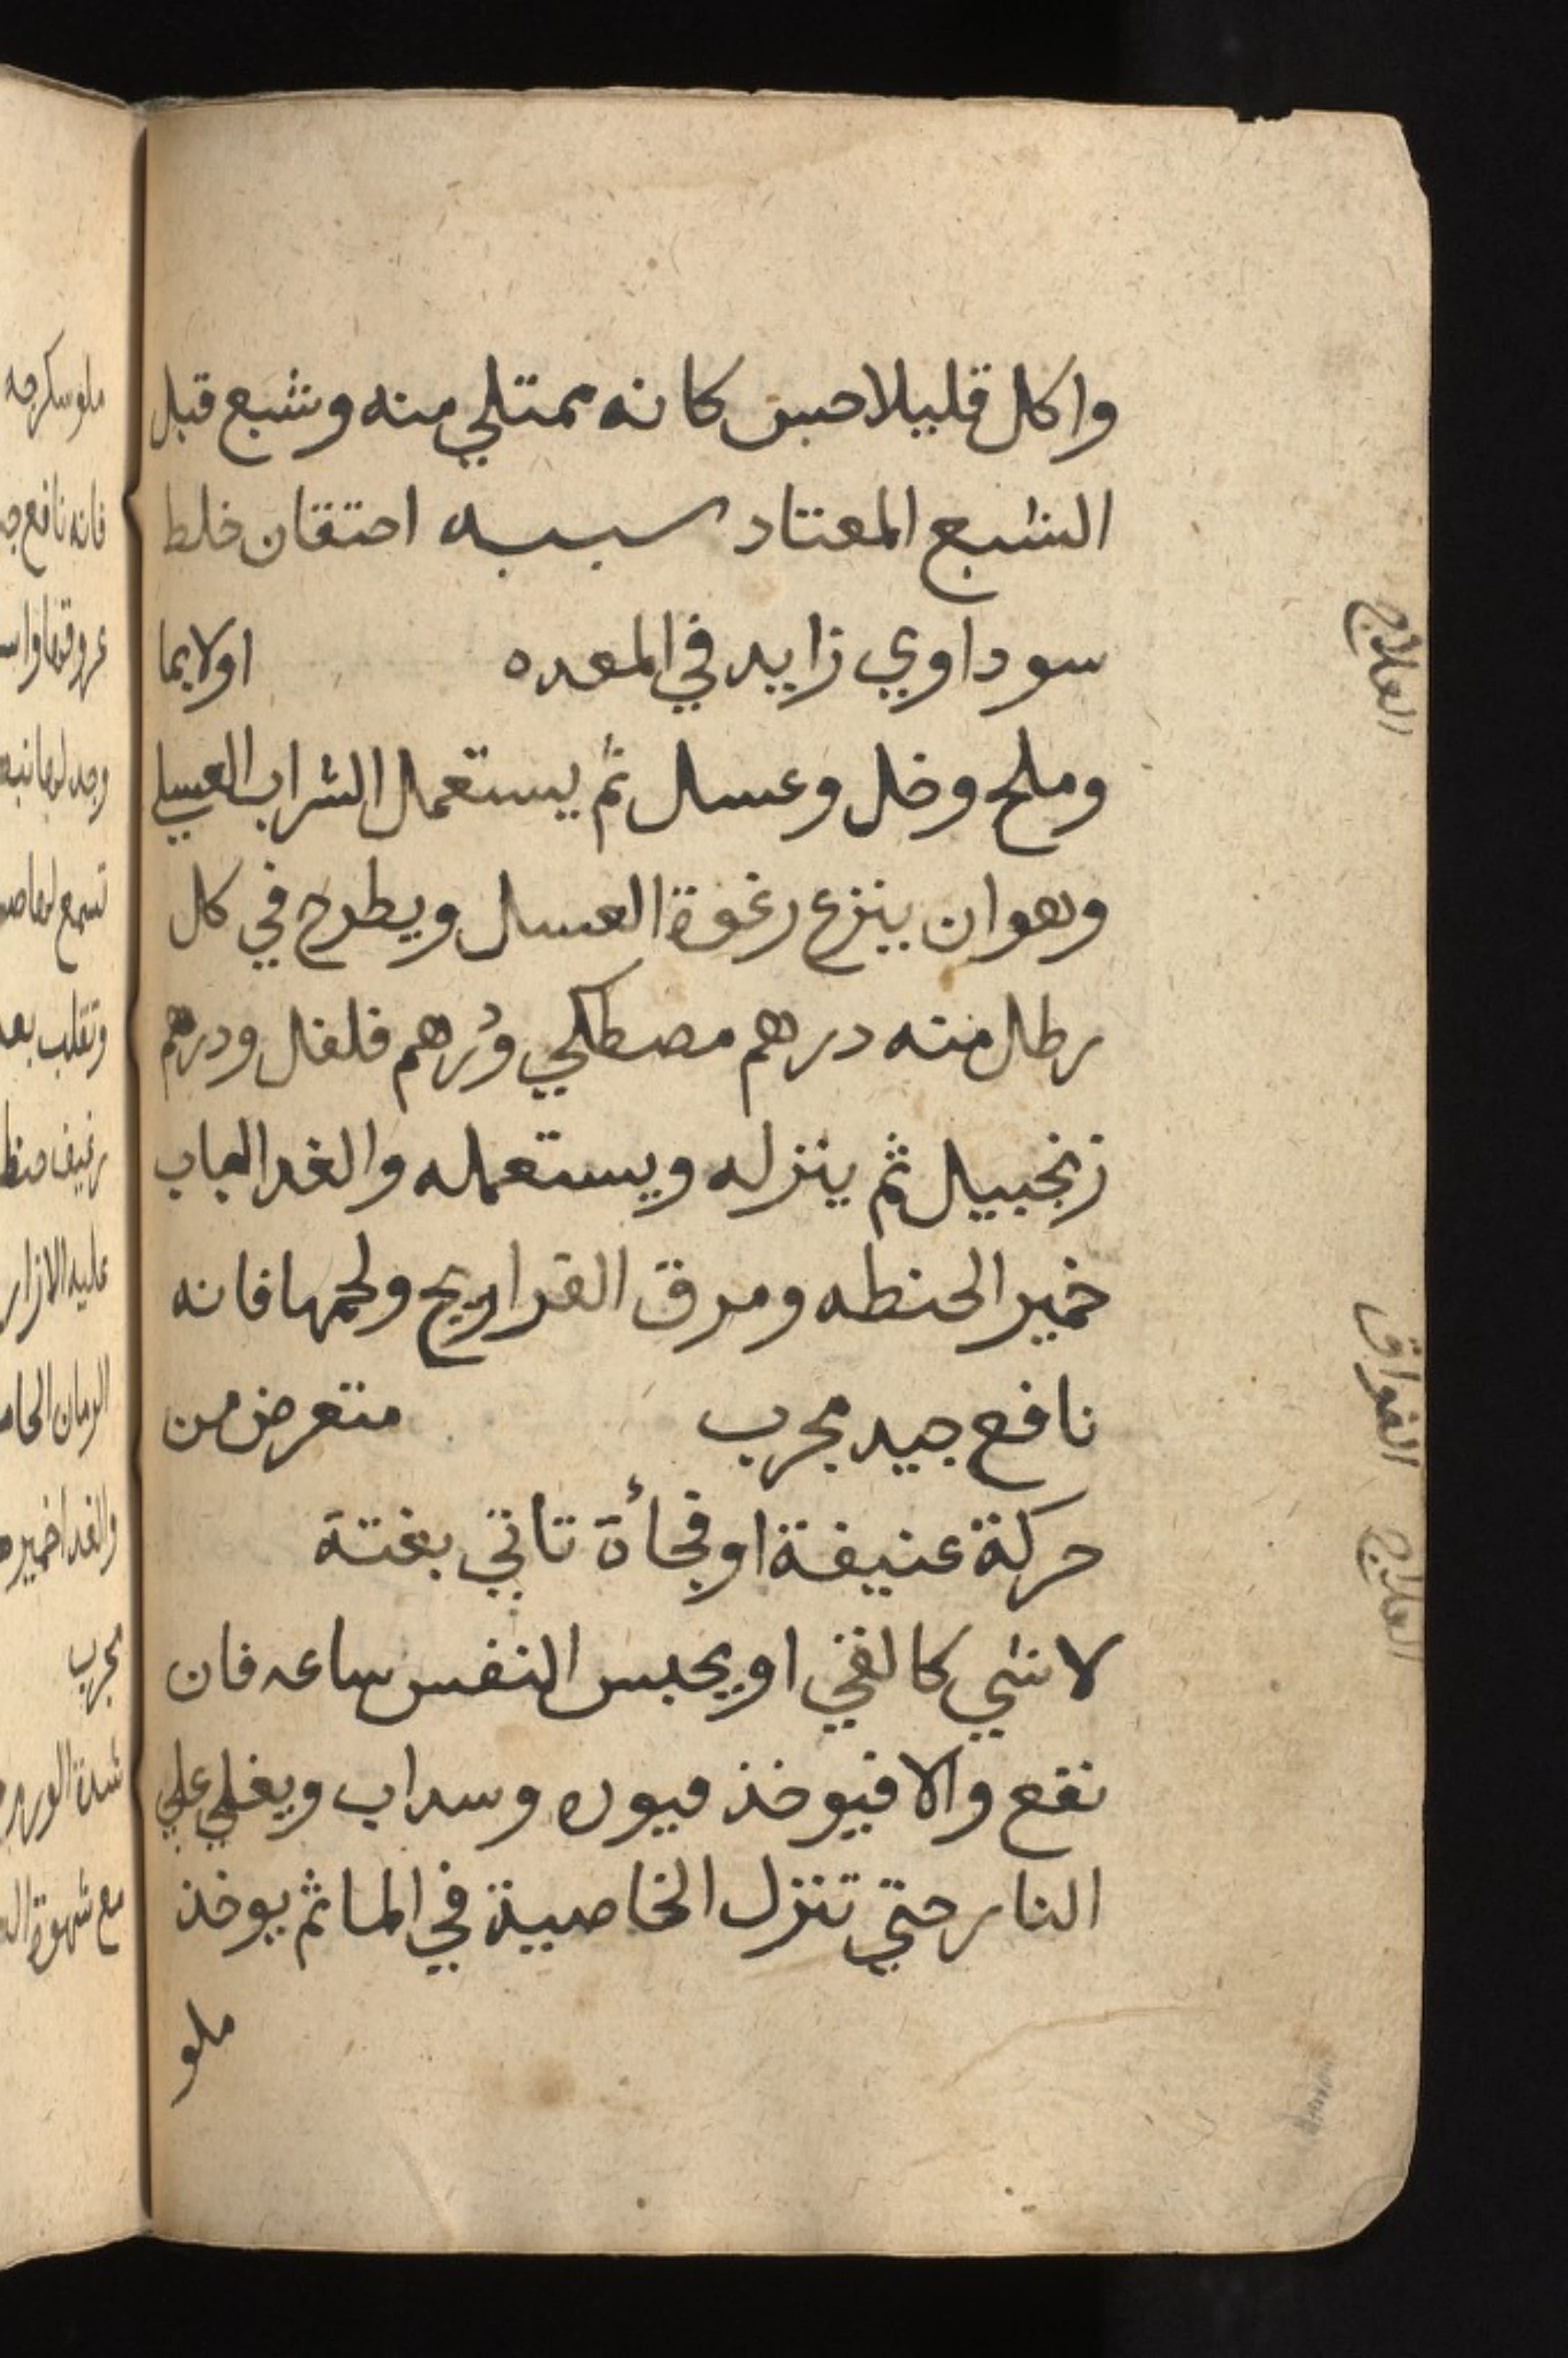 واكل قليلا حس كانه ممتلي منه وشبع قبل
الشبع المعتاد سببه احتقان خلط
سوداوي زايد في المعده اولا بما
العلاج
وملح وخل وعسل ثم يستعمل الشراب العسلي
وهو ان ينزع رغوة العسل ويطرح في كل
رطل منه درهم مصطكي ودرهم فلفل ودرهم
زنجبيل ثم ينزله ويستعمله والغدا لباب
خمير الحنطه ومرق الفراريج ولحمها فانه
نافع جيد مجرب متعرض من
الفواق
حركة عنيفة او فجأة تاتي بغتة
العلاج
لا شي كالقي او يحبس النفس ساعه فان
نفع والا فيوخذ وسداب ويغلي علي
النار حتي تنزل الخاصية في الما ثم يوخذ
ملو
ملو سكرجه
فانه نافع
تسمع لها
وتقلب بعد
رغيف
عليه الازار
الرمان
مجرب
شدة
مع شهوة